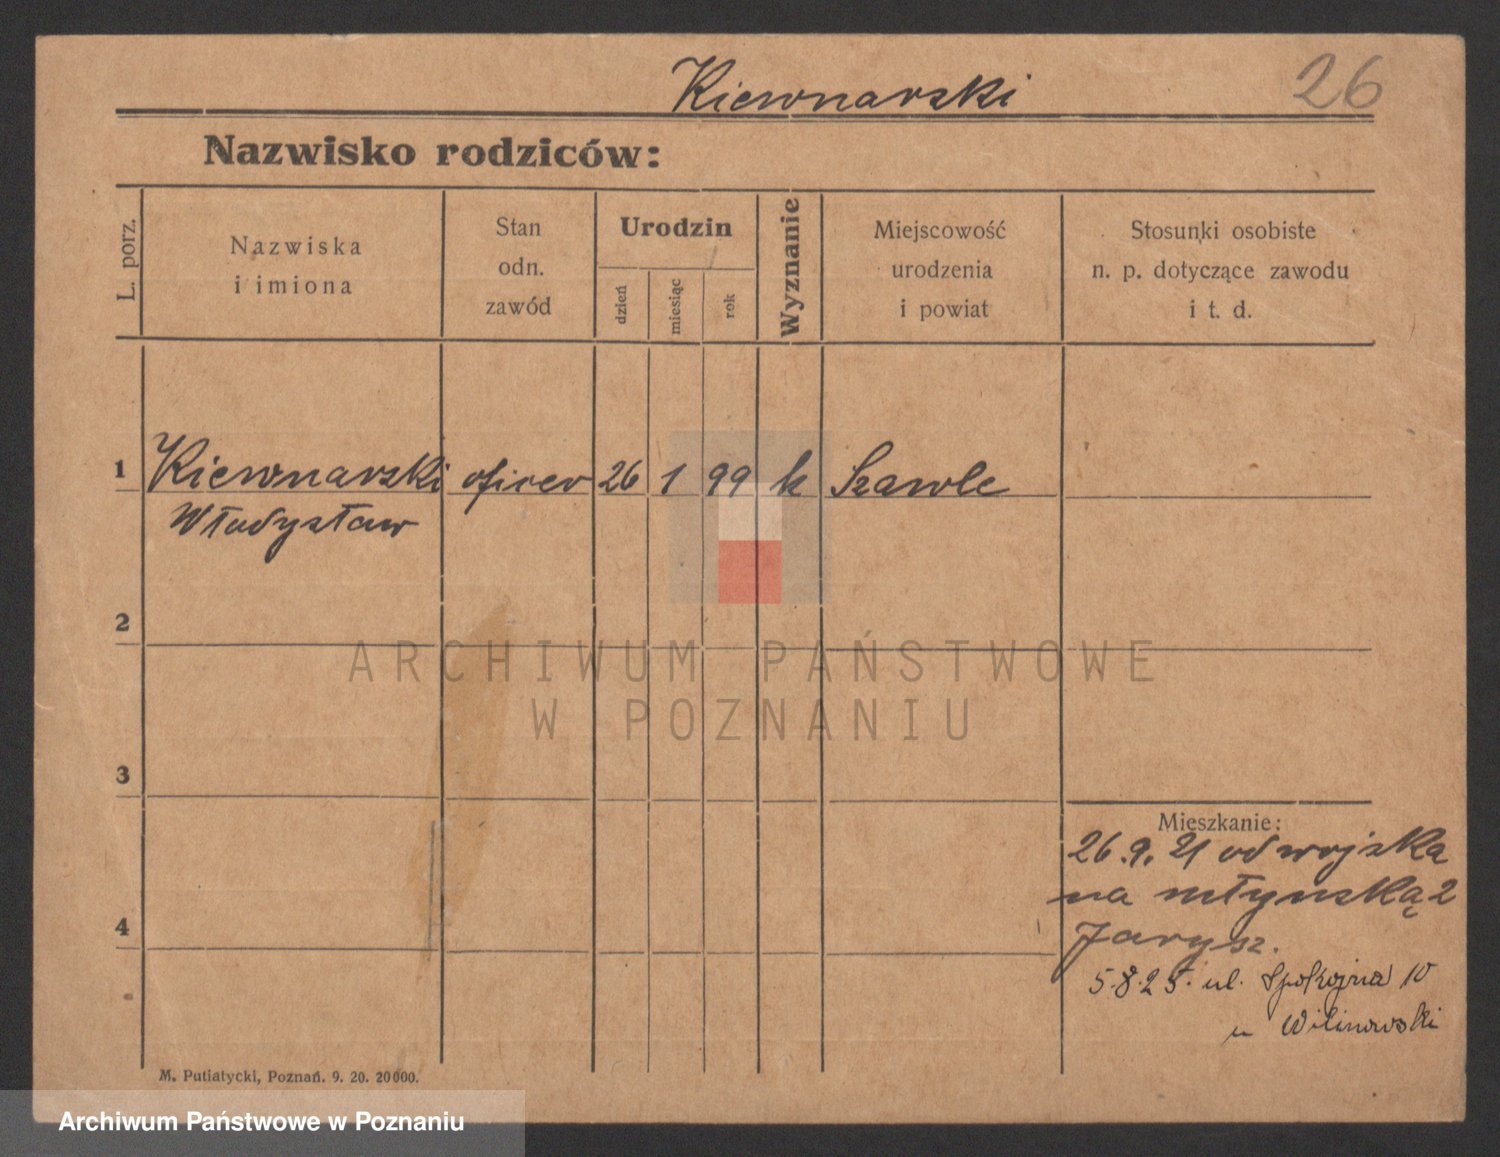 Kiewnarski
26
Nazwisko rodziców:
L. porz.
Nazwiska
i imiona
Stan
odn.
zawód
Urodzin
dzień
miesiąc
rok
Wyznanie
Miejscowość
urodzenia
i powiat
Stosunki osobiste
n. p. dotyczące zawodu
i t. d.
1 Kiewnarski oficer 26 1 99 k Szawle
Władysław
2
ARCHIWUM PAŃSTWOWE
W POZNANIU
3
Mieszkanie:
26.9.21 od wojska
na młyńską 2
Jarysz.
4
5.8.25. ul. Spokojna 10
u Wilinowski
M. Putiatycki, Poznań. 9. 20. 20000.
Archiwum Państwowe w Poznaniu